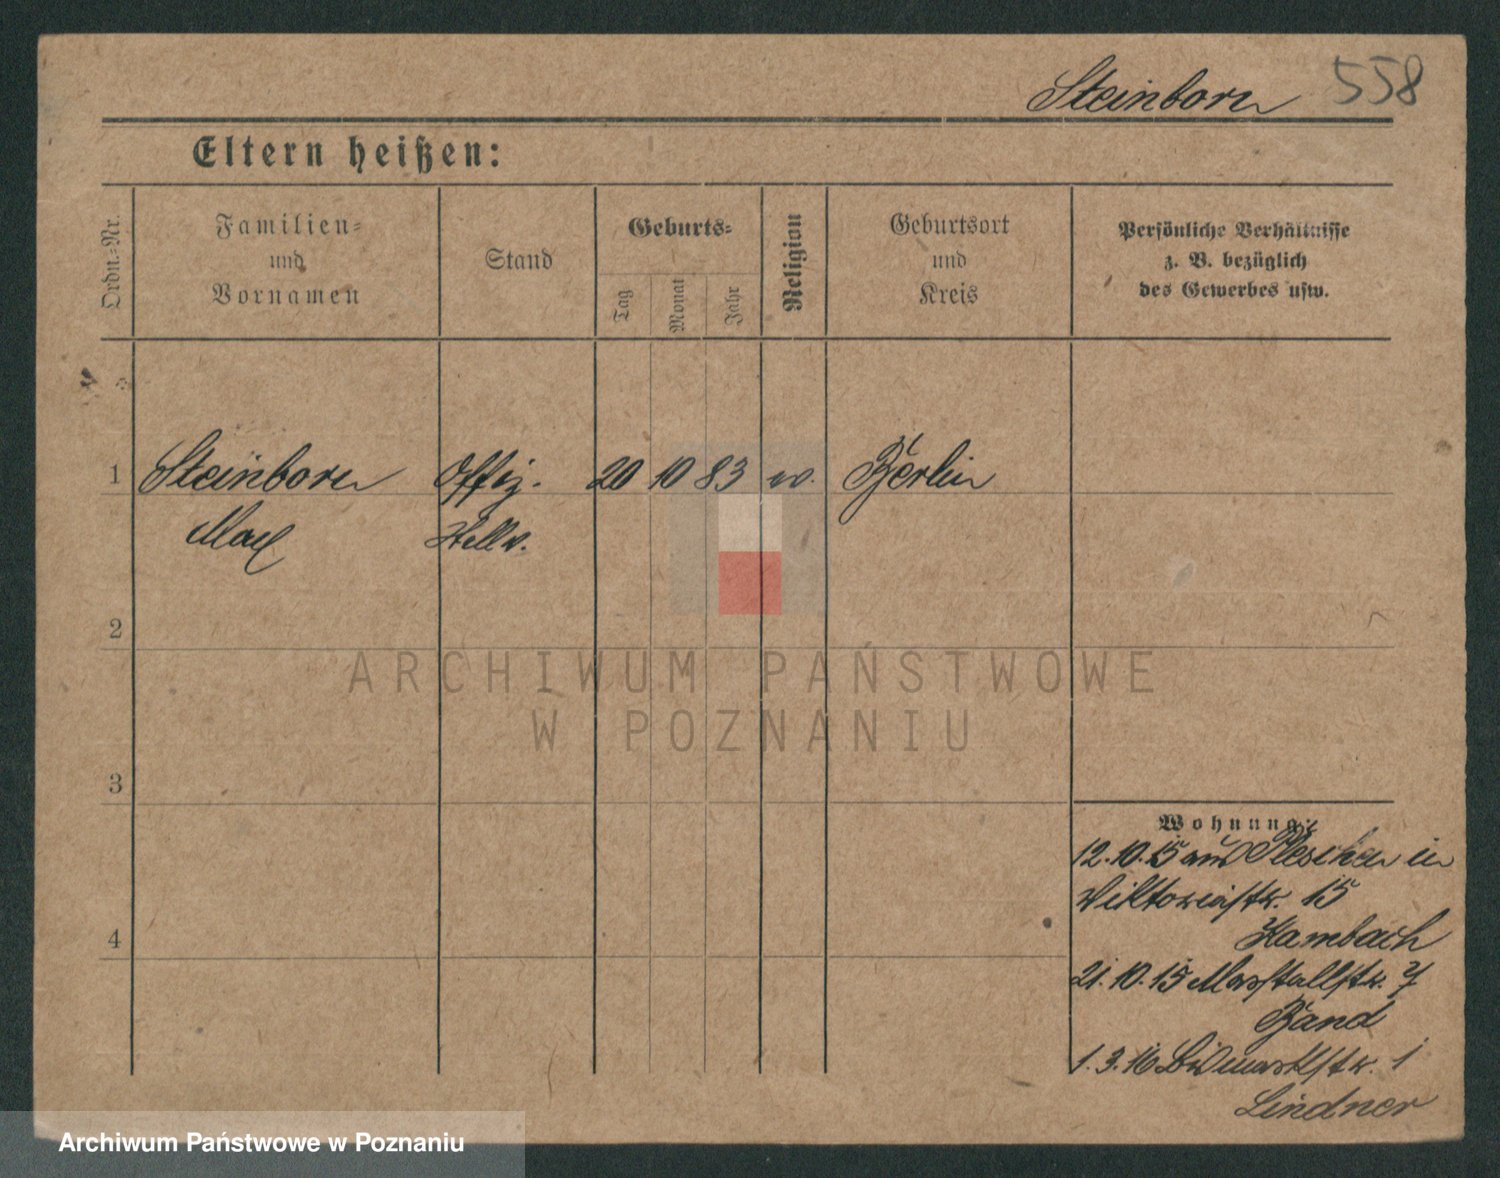 Steinborn 558
Eltern heißen:
Ordn.-Nr.
Familien-
und
Vornamen
Stand
Geburts-
Tag
Monat
Jahr
Religion
Geburtsort
und
Kreis
Persönliche Verhältnisse
z. B. bezüglich
des Gewerbes usw.
1 Steinborn Offiz. 20 10 83 Berlin
Max Stellv.
2
3
4
Wohnung:
12.10.15 aus Pleschen in
Viktoriastr. 15
Hambach
21.10.15 Marstallstr. 7
Band
1.3.16 Bismarckstr. 1
Lindner
ARCHIWUM PAŃSTWOWE
W POZNANIU
Archiwum Państwowe w Poznaniu